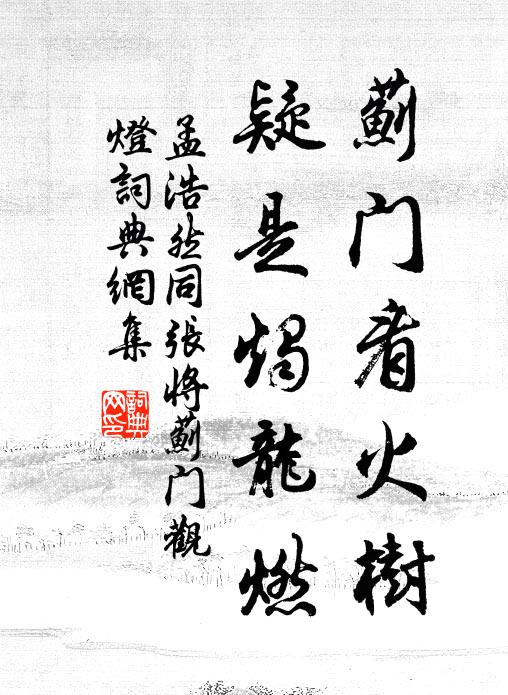 薊门看火樹
疑是燭龍燃
孟浩然同張將薊门觀
燈詞典網集
詞典
网印